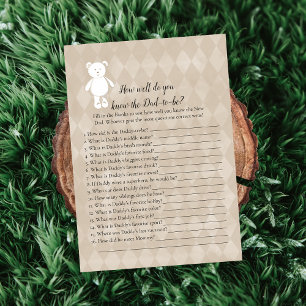 How well do you
know the Dad-to-be?
Fill in the blanks to see how well you know the New
Dad. Whoever gets the most questions correct wins!
1. How old is the Daddy-to-be?
2. What is Daddy's middle name?
3. What is Daddy's birth month?
4. What is Daddy's favorite food?
5. What is Daddy's biggest craving?
6. What is Daddy's favorite drink?
7. What is Daddy's favorite movie?
8. If Daddy were a superhero, he would be?
9. What car does Daddy drive?
10. How many siblings does he have?
11. What is Daddy's favorite hobby?
12. What is Daddy's favorite color?
13. What was Daddy's first job?
14. What is Daddy's favorite sport?
15. What is Daddy's career?
16. How did he meet Mommy?